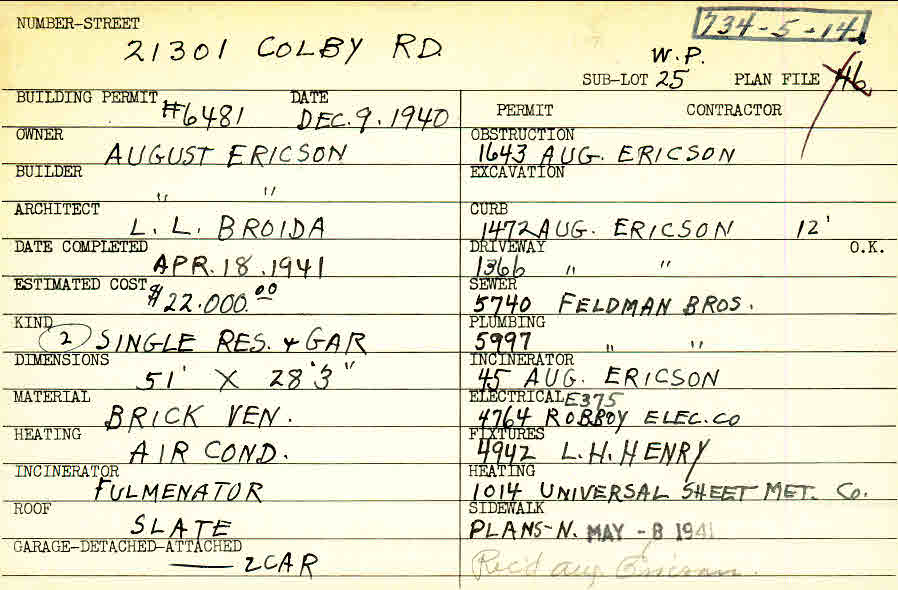 NUMBER-STREET
734-5-14
21301 COLBY RD.
W.P.
SUB-LOT 25 PLAN FILE 46
BUILDING PERMIT #6481 DATE DEC. 9. 1940
PERMIT CONTRACTOR
OWNER AUGUST ERICSON
OBSTRUCTION 1643 AUG. ERICSON
BUILDER " "
EXCAVATION
ARCHITECT L. L. BROIDA
CURB 1472 AUG. ERICSON 12'
DATE COMPLETED APR. 18. 1941
DRIVEWAY 1366 " " O.K.
ESTIMATED COST $22.000.00
SEWER 5740 FELDMAN BROS.
KIND (2) SINGLE RES. & GAR
PLUMBING 5997 " "
DIMENSIONS 51' X 28'3"
INCINERATOR 45 AUG. ERICSON
MATERIAL BRICK VEN.
ELECTRICAL E375
4764 ROBBOY ELEC. CO
HEATING AIR COND.
FIXTURES 4942 L. H. HENRY
INCINERATOR FULMENATOR
HEATING 1014 UNIVERSAL SHEET MET. CO.
ROOF SLATE
SIDEWALK
PLANS-N. MAY -8 1941
GARAGE-DETACHED-ATTACHED
2 CAR
Rec'd Aug. Ericson.